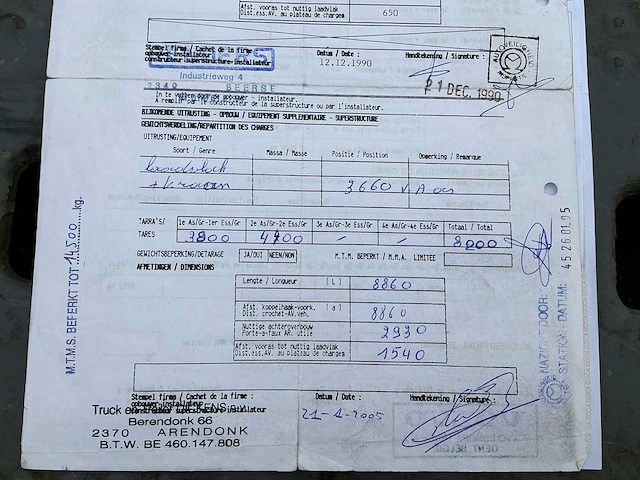 Afst. vooras tot nuttig laadvlak
Dist.ess.AV. au plateau de chargem
650
Stempel firma / Cachet de la firme
opbouwer-installateur
constructeur.superstructure-installateur
Datum / Date :
12.12.1990
Handtekening / Signature :
Industrieweg 4
BEERSE
21 DEC. 1990
In te vullen door de opbouwer - installateur.
A remplir par le constructeur de la superstructure ou par l'installateur.
BIJKOMENDE UITRUSTING - OPBOUW / EQUIPEMENT SUPPLEMENTAIRE - SUPERSTRUCTURE
GEWICHTSVERDELING/REPARTITION DES CHARGES
UITRUSTING/EQUIPEMENT
Soort / Genre
Massa / Masse
Positie / Position
Opmerking / Remarque
3660
TARRA'S/
TARES
1e As/Gr-1er Ess/Gr
2e As/Gr-2e Ess/Gr
3e As/Gr-3e Ess/Gr
4e As/Gr-4e Ess/Gr
Totaal / Total
GEWICHTSBEPERKING/DETARAGE
JA/OUI
NEEN/NON
M.T.M. BEPERKT / M.M.A. LIMITEE
AFMETINGEN / DIMENSIONS
Lengte / Longueur
( L )
8860
Afst. koppelhaak-voork.
Dist. crochet-AV.veh.
( a )
8860
Nuttige achteroverbouw
Porte-à-faux AR. utile
2930
Afst. vooras tot nuttig laadvlak
Dist.ess.AV. au plateau de chargem
1540
Stempel firma / Cachet de la firme :
opbouwer-installateur
Datum / Date :
21-4-2005
Handtekening / Signature :
Truck en
Berendonk 66
2370 ARENDONK
B.T.W. BE 460.147.808
M.T.M.S. BEPERKT TOT 14500 kg.
NAZICHT DOOR:
STATION - DATUM:
45 26.01.95